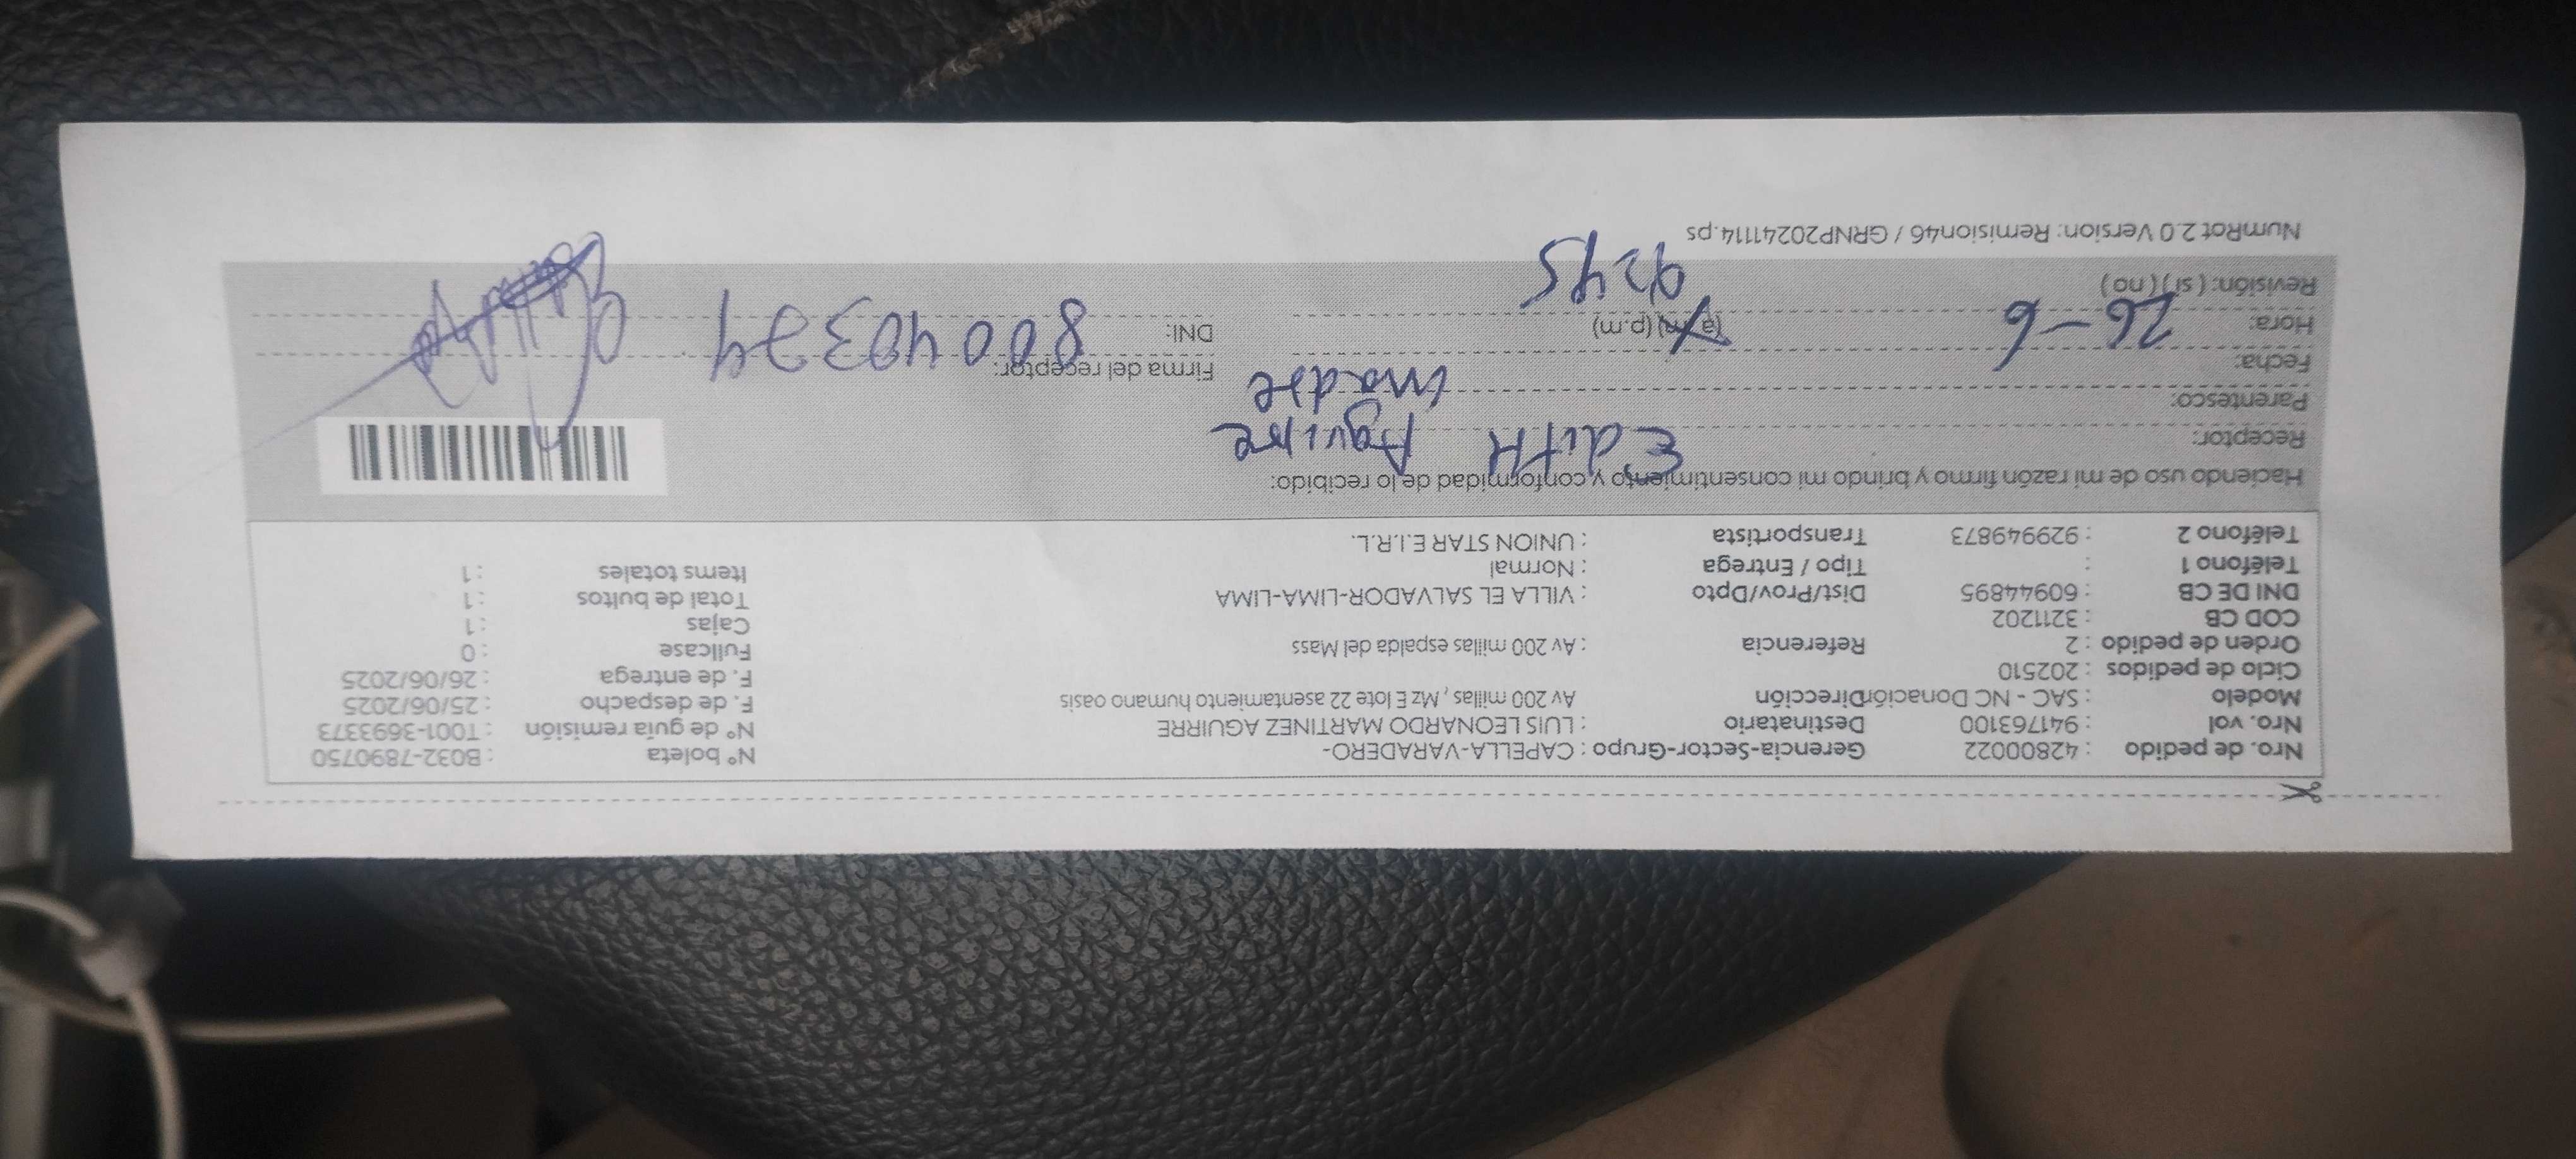 Nro. de pedido : 42800022 Gerencia-Sector-Grupo : CAPELLA-VARADERO- N° boleta : B032-7890750
Nro. vol : 941763100 Destinatario : LUIS LEONARDO MARTINEZ AGUIRRE N° de guía remisión : T001-3693373
Modelo : SAC - NC Donación Dirección Av 200 millas , Mz E lote 22 asentamiento humano oasis F. de despacho : 25/06/2025
Ciclo de pedidos : 202510 F. de entrega : 26/06/2025
Orden de pedido : 2 Referencia : Av 200 millas espalda del Mass Fullcase : 0
COD CB : 3211202 Cajas : 1
DNI DE CB : 60944895 Dist/Prov/Dpto : VILLA EL SALVADOR-LIMA-LIMA Total de bultos : 1
Teléfono 1 : Tipo / Entrega : Normal Items totales : 1
Teléfono 2 : 929949873 Transportista : UNION STAR E.I.R.L.
Haciendo uso de mi razón firmo y brindo mi consentimiento y conformidad de lo recibido:
Receptor: Edith Aguirre
Parentesco: madre
Fecha: 26-6 Firma del receptor:
Hora: (a.m) (p.m) 9:45 DNI: 80040374
Revisión: ( si ) ( no )
NumRot 2.0 Version: Remision46 / GRNP20241114.ps